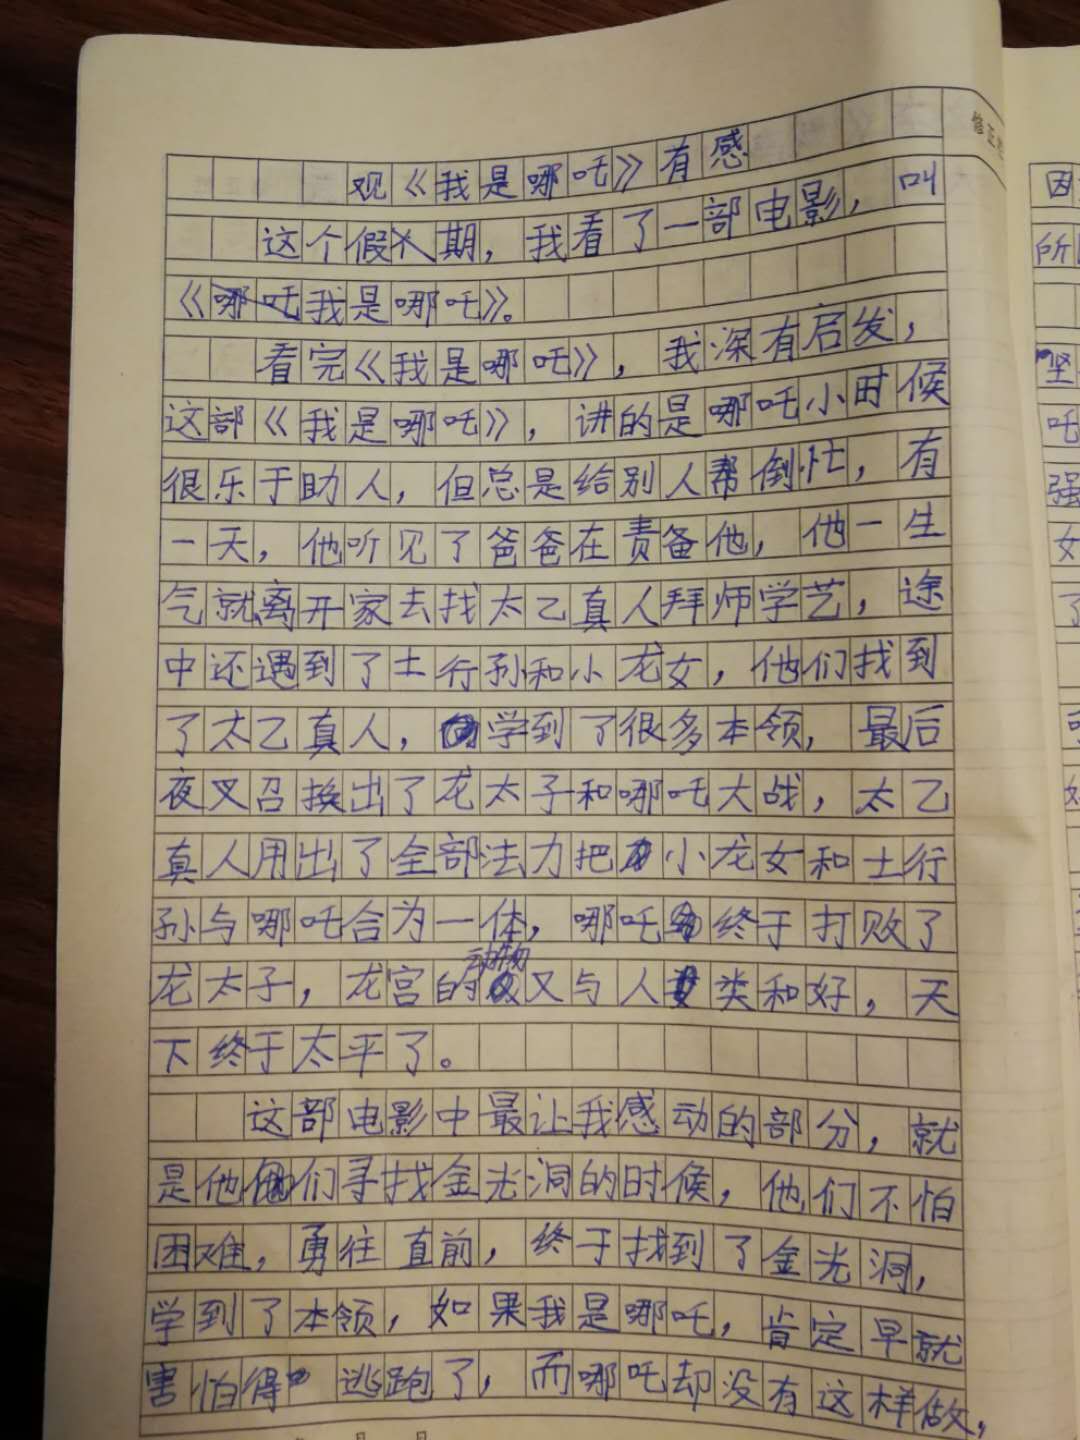 观《我是哪吒》有感
这个假期，我看了一部电影，叫
《我是哪吒》。
看完《我是哪吒》，我深有启发，
这部《我是哪吒》，讲的是哪吒小时候
很乐于助人，但总是给别人帮倒忙，有
一天，他听见了爸爸在责备他，他一生
气就离开家去找太乙真人拜师学艺，途
中还遇到了土行孙和小龙女，他们找到
了太乙真人，学到了很多本领，最后
夜叉召换出了龙太子和哪吒大战，太乙
真人用出了全部法力把小龙女和土行
孙与哪吒合为一体，哪吒终于打败了
龙太子，龙宫的动物又与人类和好，天
下终于太平了。
这部电影中最让我感动的部分，就
是他们寻找金光洞的时候，他们不怕
困难，勇往直前，终于找到了金光洞，
学到了本领，如果我是哪吒，肯定早就
害怕得逃跑了，而哪吒却没有这样做，
因
所
坚
吒
强
女
了